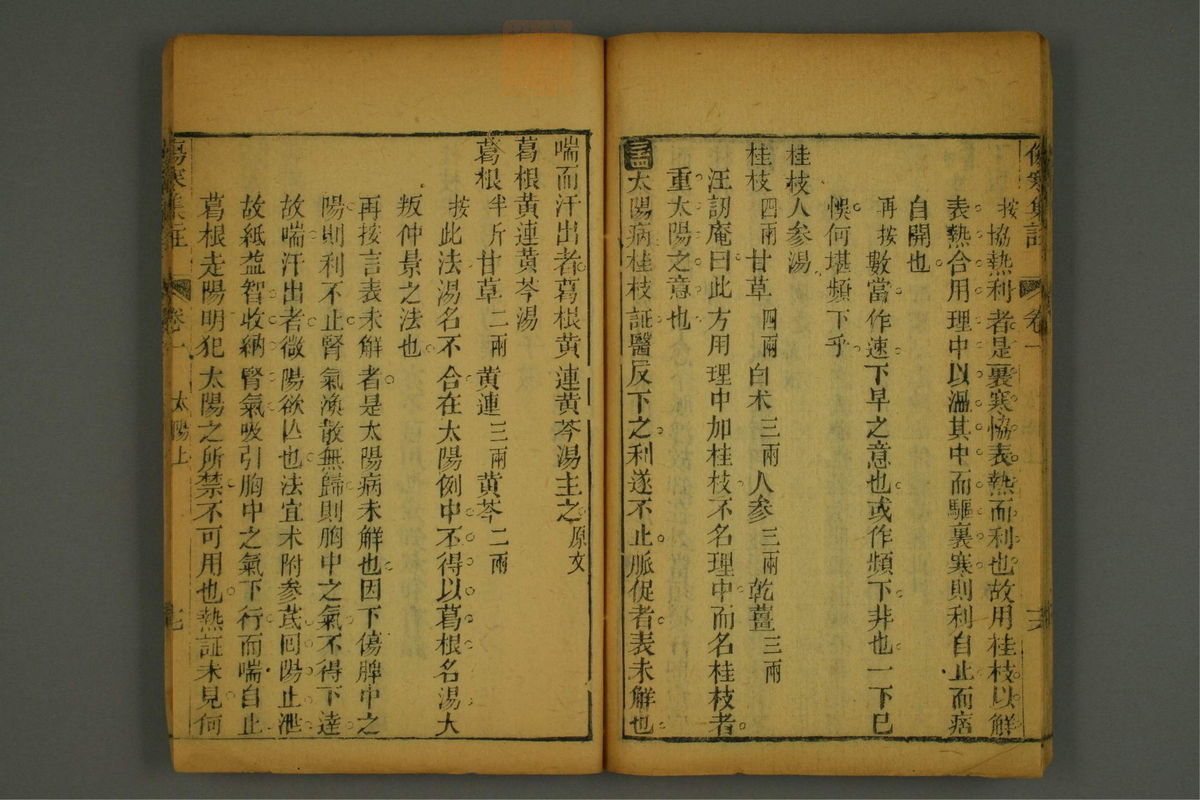 傷寒集註 卷一
按協熱利者是裏寒恊表熱而利也故用桂枝以解
表熱合用理中以溫其中而驅裏寒則利自止而痞
自開也
再按數當作速下早之意也或作頻下非也一下已
悞何堪頻下乎
桂枝人參湯
桂枝四兩甘草四兩白术三兩人參三兩乾薑三兩
汪訒庵曰此方用理中加桂枝不名理中而名桂枝者
重太陽之意也
三四太陽病桂枝証醫反下之利遂不止脈促者表未解也
喘而汗出者葛根黃連黃芩湯主之原文
葛根黃連黃芩湯
葛根半斤甘草二兩黃連三兩黃芩二兩
按此法湯名不合在太陽例中不得以葛根名湯大
叛仲景之法也
再按言表未解者是太陽病未解也因下傷脾中之
陽則利不止腎氣渙散無歸則胸中之氣不得下達
故喘汗出者微陽欲亾也法宜术附參芪囘陽止泄
故紙益智收納腎氣吸引胸中之氣下行而喘自止
葛根走陽明犯太陽之所禁不可用也熱証未見何
傷寒集註 卷一 太陽上 七